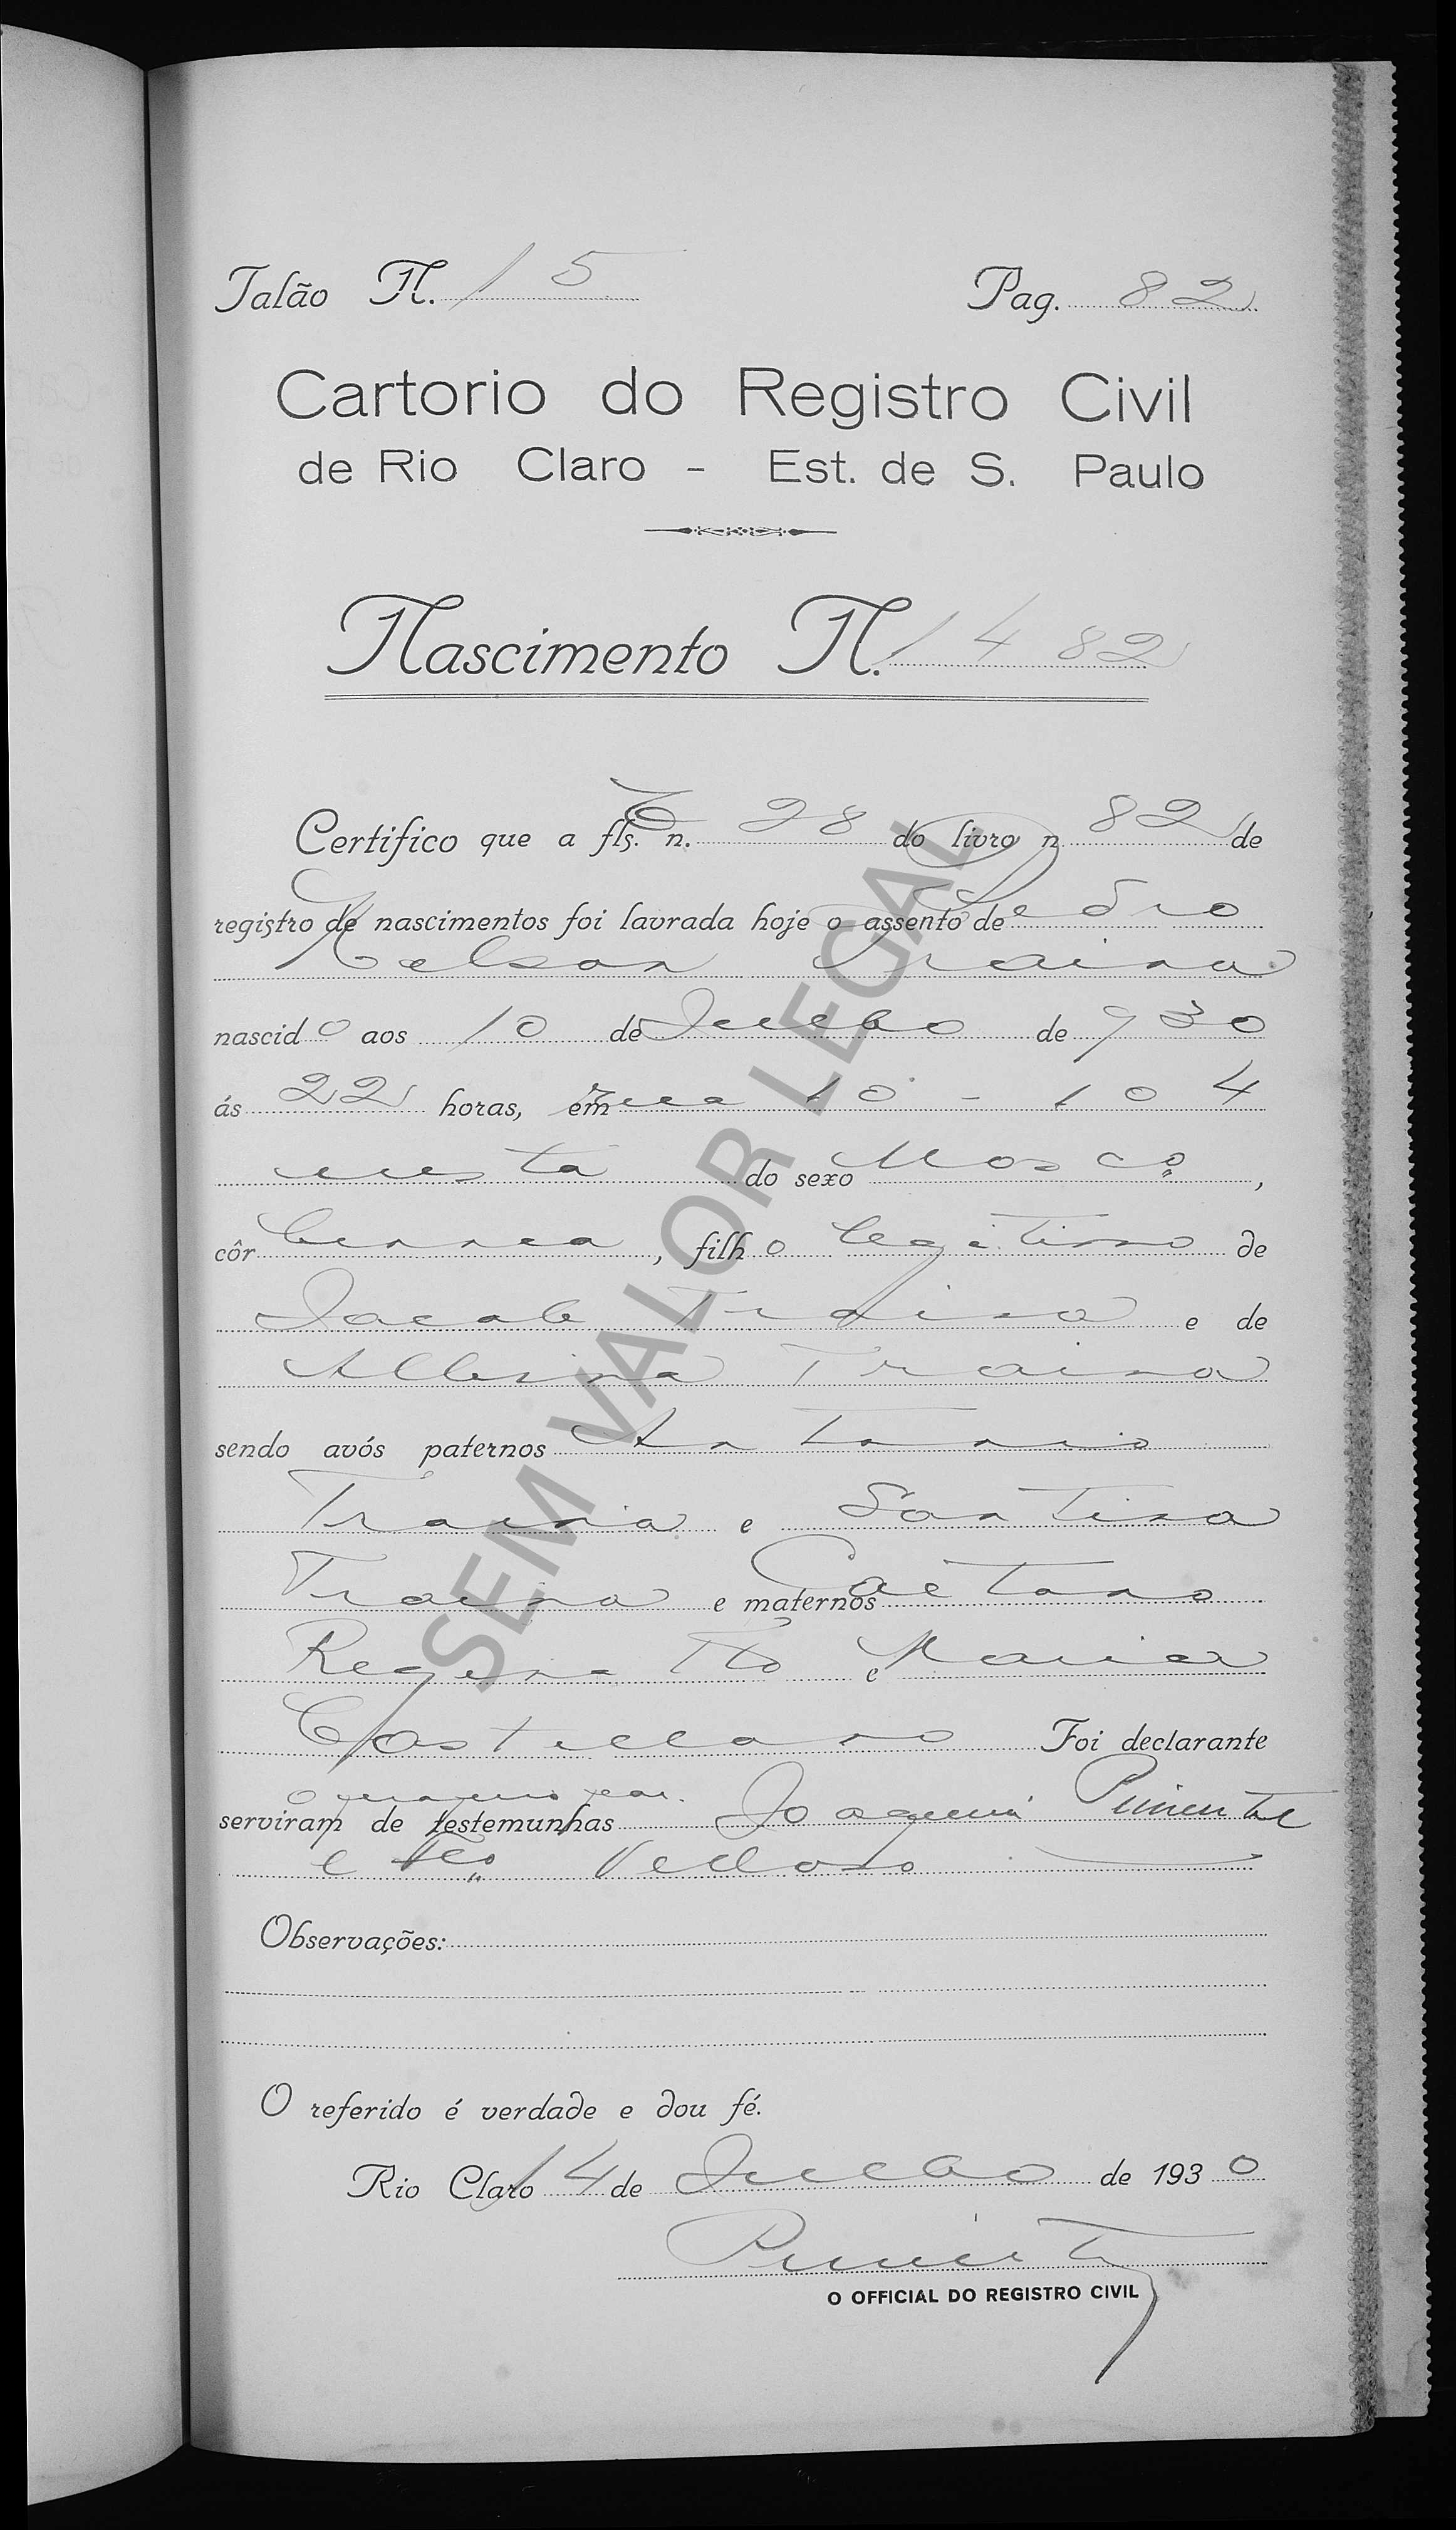 Talão N. 15 Pag. 82
Cartorio do Registro Civil
de Rio Claro - Est. de S. Paulo
Nascimento N. 1482
Certifico que a fls. n. 28 do livro n 82 de
registro de nascimentos foi lavrada hoje o assento de Pedro
Nelson Traina
nascido aos 10 de Julho de 930
ás 22 horas, em rua 10 - 104
nesta do sexo Masco,
côr branca, filho legitimo de
Jacob Traina e de
Albina Traina
sendo avós paternos Antonio
Traina e Santina
Traina e maternos Caetano
Reginatto e Maria
Castellano Foi declarante
o mesmo pae.
serviram de testemunhas Joaquim Pimentel
e Veloso
Observações:
O referido é verdade e dou fé.
Rio Claro 14 de Julho de 1930
O OFFICIAL DO REGISTRO CIVIL
SEM VALOR LEGAL